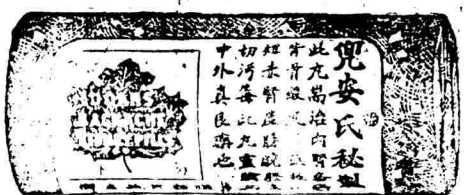 兜安氏秘製
此丸耑治內腎
背骨酸
短赤腎虛膀胱
切污毒此丸實
中外真良藥也
DOAN'S
BACKACHE
KIDNEY PILLS